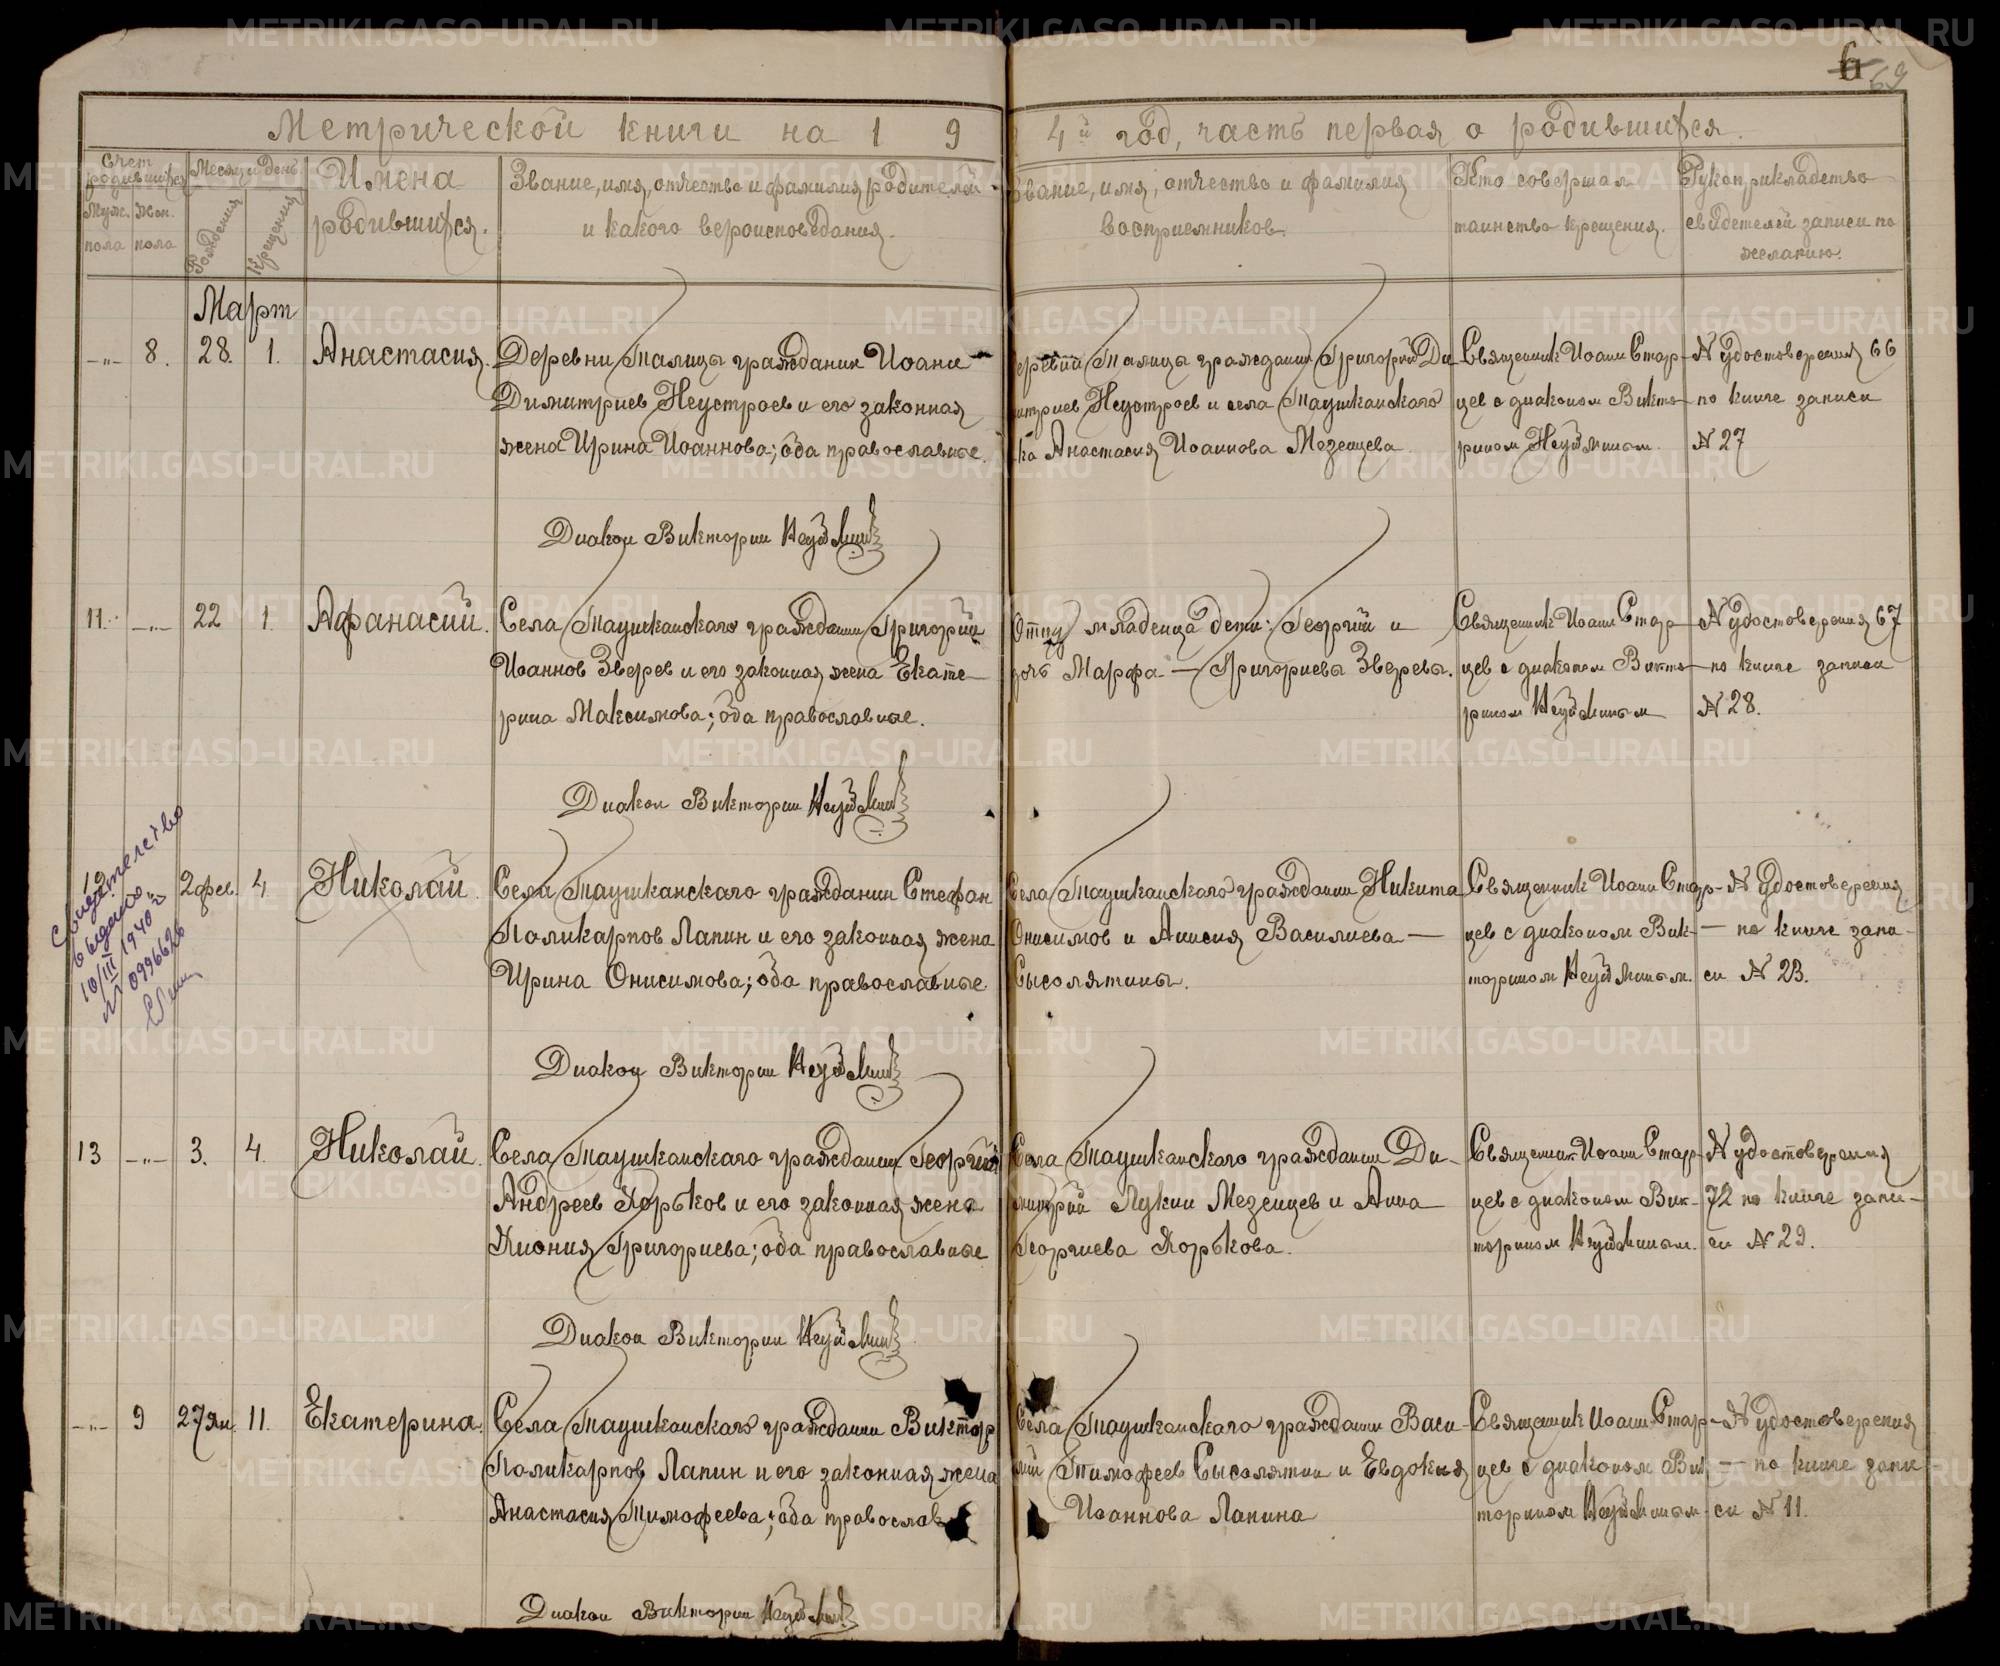 6
69
Метрической книги на 1 9 4й год, часть первая о родившихся.
Счет родившихся
Муж. пола
Жен. пола
Месяц и день
Рождения
Крещения
Имена
родившихся.
Звание, имя, отчество и фамилия родителей
и какого вероисповедания.
Звание, имя, отчество и фамилия
восприемников.
Кто совершал
таинство крещения.
Рукоприкладство
свидетелей записи по
желанию.
Март
-"- 8. 28. 1. Анастасия.
Деревни Талицы гражданин Иоанн
Димитриев Неустроев и его законная
жена Ирина Иоаннова; оба православные.
Деревни Талицы гражданин Григорий Ди-
митриев Неустроев и села Таушканского
Анастасия Иоаннова Мезенцева
Священник Иоанн Стар-
цев с диаконом Викто-
рином Неуйминым.
N удостоверения 66
по книге записи
N 27
Диакон Викторин Неуймин
11. -"- 22 1. Афанасий.
Села Таушканского гражданин Григорий
Иоаннов Зверев и его законная жена Екате-
рина Максимова; оба православные.
Отца младенца дети: Георгий и
дочь Марфа — Григориевы Зверевы.
Священник Иоанн Стар-
цев с диаконом Викто-
рином Неуйминым
N удостоверения 67
по книге записи
N 28.
Диакон Викторин Неуймин
12 -"- 2 фев. 4. Николай.
Свидетелство
выдано
10/III 1940 г
N 099662
Села Таушканского гражданин Стефан
Поликарпов Лапин и его законная жена
Ирина Онисимова; оба православные
Села Таушканского гражданин Никита
Онисимов и Анисия Василиева —
Сысолятины.
Священник Иоанн Стар-
цев с диаконом Вик-
торином Неуйминым.
N удостоверения
— по книге запи-
си N 23.
Диакон Викторин Неуймин
13 -"- 3. 4. Николай.
Села Таушканского гражданин Георгий
Андреев Хорьков и его законная жена
Хиония Григориева; оба православные
Села Таушканского гражданин Ди-
митрий Лукин Мезенцев и Анна
Георгиева Хорькова.
Священник Иоанн Стар-
цев с диаконом Вик-
торином Неуйминым.
N удостоверения
72 по книге запи-
си N 29.
Диакон Викторин Неуймин
-"- 9 27 Ян. 11. Екатерина.
Села Таушканского гражданин Виктор
Поликарпов Лапин и его законная жена
Анастасия Тимофеева; оба православ
Села Таушканского гражданин Васи-
лий Тимофеев Сысолятин и Евдокия
Иоаннова Лапина
Священник Иоанн Стар-
цев с диаконом Вик-
торином Неуйминым
N удостоверения
— по книге запи-
си N 11.
Диакон Викторин Неуймин
METRIKI.GASO-URAL.RU